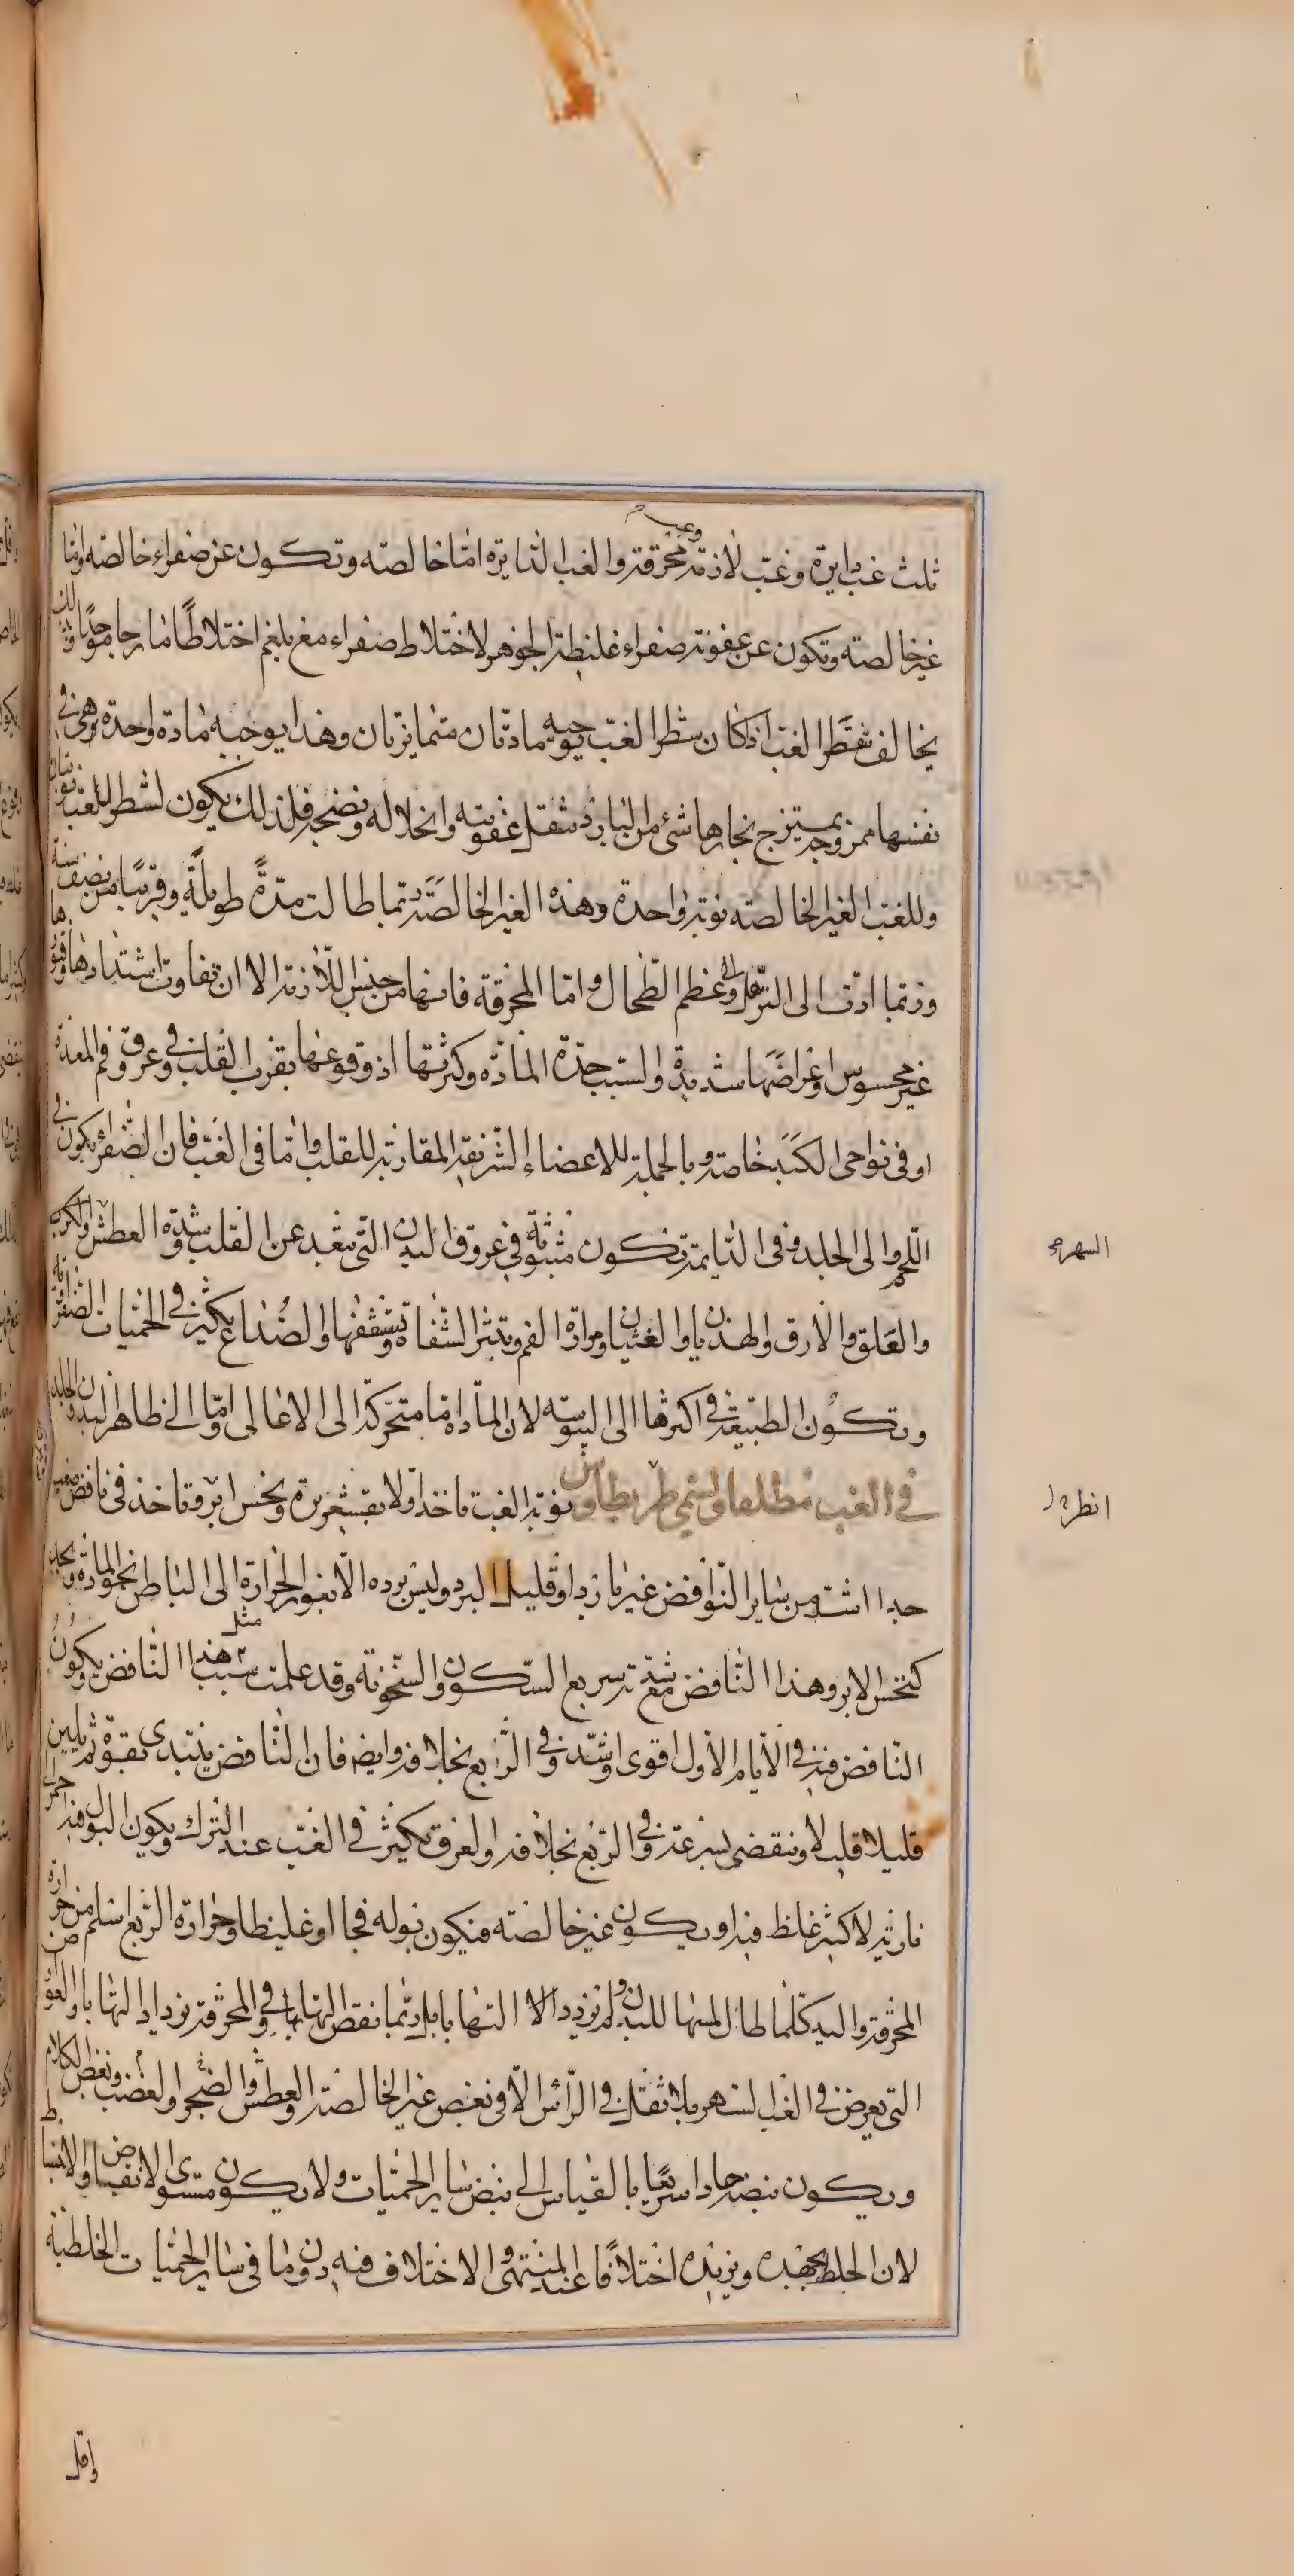 ثلث غب دايرة وغب لازمة وغب محرقة والغب الدايرة اما خالصه وتكون عن صفراء خالصه واما
غير خالصته وتكون عن عفونة صفراء غليظة الجوهر لاختلاط صفراء مع بلغم اختلاطا مازجا موحدا ولذلك
يخالف شطر الغب اذ كان شطر الغب يوجبه مادتان متمايزتان وهذا يوجبه مادة واحدة هي في
نفسها ممزوجة يمتزج بخارها شئ من البارد يثقل عفونته وانحلاله ونضجه فلذلك يكون لشطر الغب نوبتان
وللغب الغير الخالصته نوبة واحدة وهذه الغير الخالصة ربما طالت مدة طويلة وقريبا من نصف سنة
وربما ادت الى الترهل والى عظم الطحال واما المحرقة فانها من جنس اللازمة الا ان تفاوت اشتدادها وفتورها
غير محسوس واعراضها شديدة والسبب حدة المادة وكثرتها اذ وقوعها بقرب القلب وفي عروق فم المعدة
او في نواحى الكبد خاصة وبالجملة للاعضاء الشريفة المقاربة للقلب واما في الغب فان الصفراء يكون في
اللحم والى الجلد وفى الدايمة تكون مبثوثة في عروق البدن التى تبعد عن القلب وشدة العطش والكرب
والقلق والارق والهذيان والغثيان ومرارة الفم وتبثر الشفاة وتشققها والصداع يكثر في الحميات الصفراوية
وتكون الطبيعة في اكثرها الى اليبوسه لان المادة اما متحركة الى الاعالى واما الى ظاهر البدن والجلد
في الغب مطلقا وسمى طريطاوس نوبة الغب تاخذ اولا بقشعريرة ونخس ابر وتاخذ في نافض صعب
جدا اشد من ساير النوافض غير بارد او قليل البرد وليس برده الا لغور الحرارة الى الباطن نحو المادة ويجد
كنخس الابر وهذا النافض مع شدته سريع السكون والسخونة وقد علمت سبب مثل هذا النافض ويكون
النافض فيه في الايام الاول اقوى واشد وفي الربع بخلافه وايضا فان النافض يبتدى بقوة ثم يلين
قليلا قليلا وينقضي بسرعة وفي الربع بخلافه والعرق يكثر في الغب عند الترك ويكون البول فيه احمر الى
نارية لا كثير غلظ فيه او يكون غير خالصة فيكون بوله فجا او غليظا وحرارة الربع اسلم من حرارة
المحرقة واليد كلما طال لمسها للبدن لم يزدد الا التهابا بل ربما نقص التهابها وفي المحرقة يزداد التهابا والعوارض
التى تعرض في الغب السهر بلا ثقل في الرأس الا في بعض غير الخالصة والعطش والضجر والغضب وبغض الكلام
ويكون نبضه حادا سريعا بالقياس الى نبض ساير الحميات ولا يكون مستوى الانقباض والانبساط
لان الخلط يجهده ويزيده اختلافا عند المنتهى والاختلاف فيه دون ما في ساير الحميات الخلطية
واقل
السهر صح
انظر